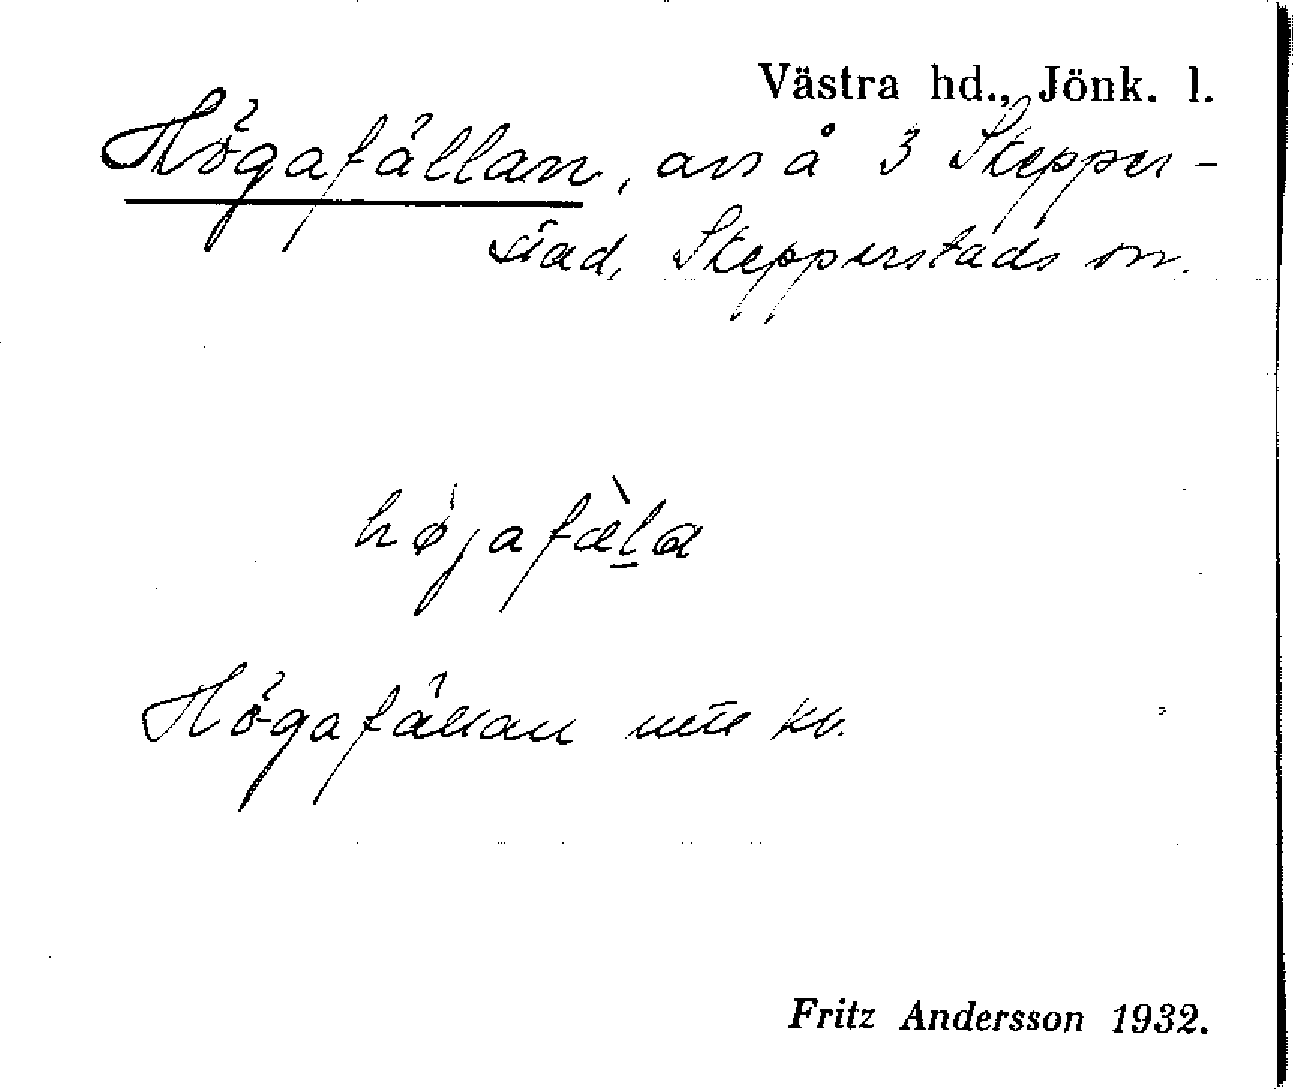 Västra hd., Jönk. l.
Högafällan, avs å 3 Skepper-
stad, Skepperstads sn.
högafæla
Högafällan utt kb.
Fritz Andersson 1932.